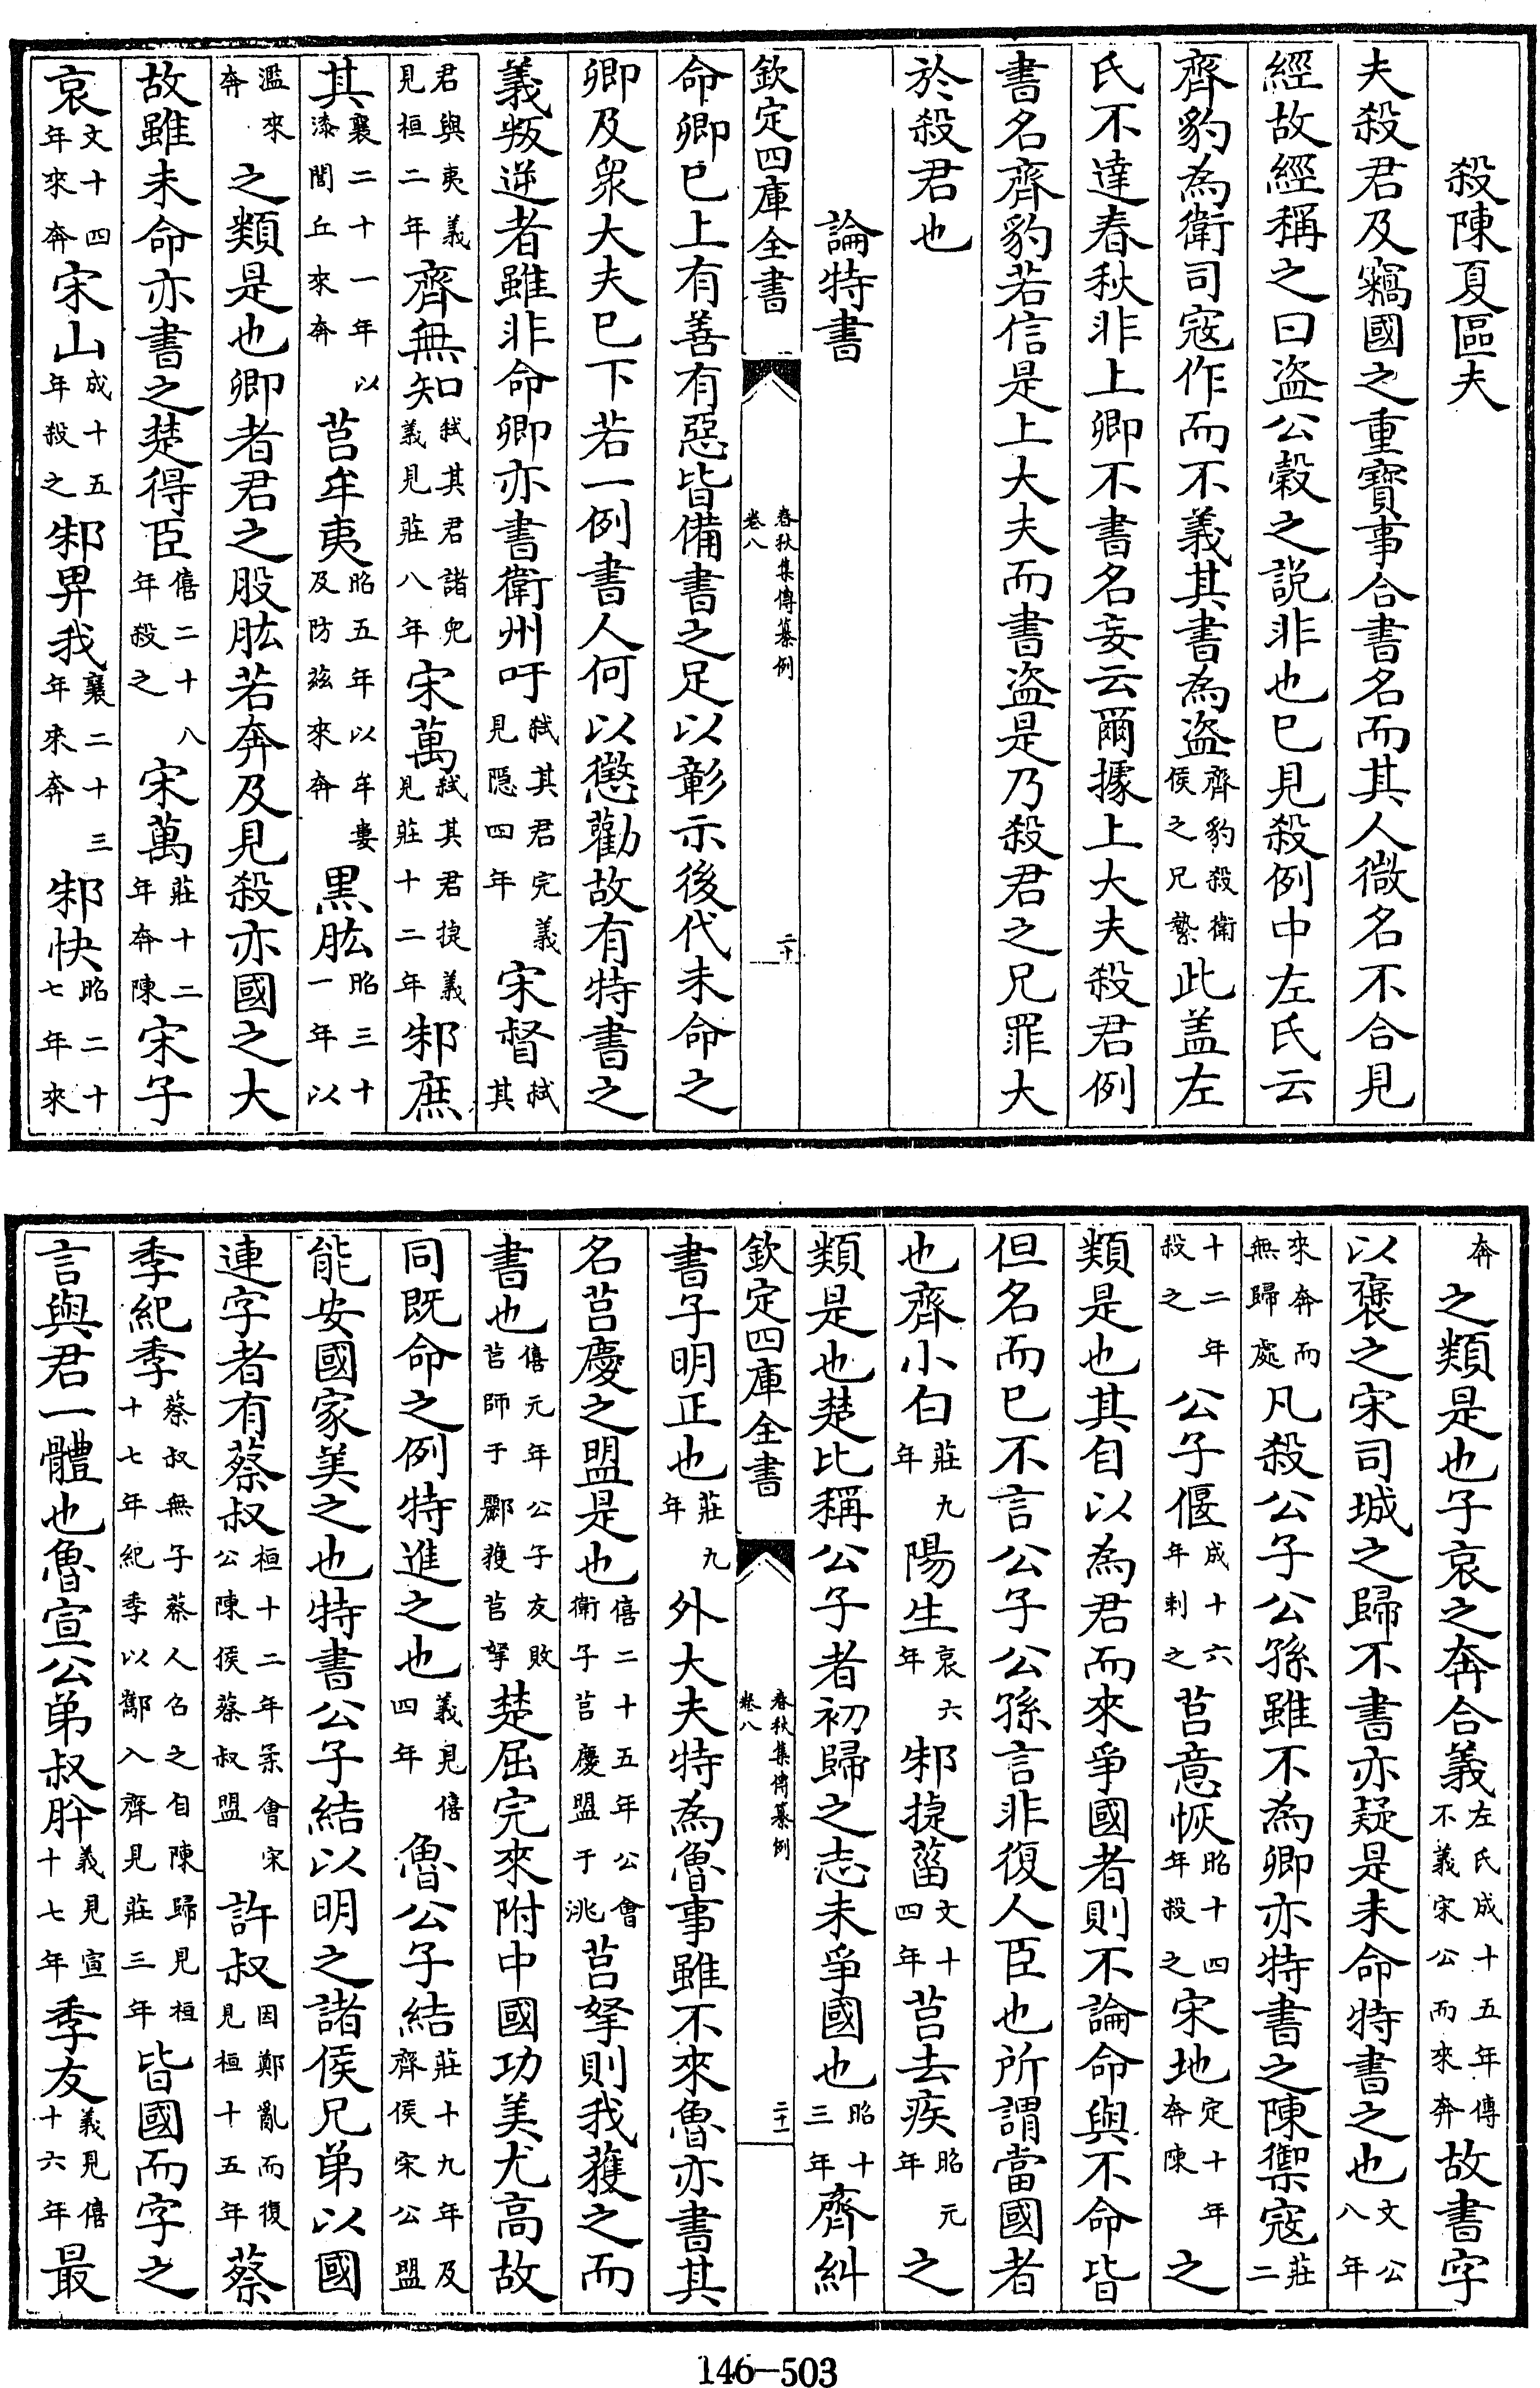 殺陳夏區夫
夫殺君及竊國之重寶事合書名而其人微名不合見
經故經稱之曰盗公穀之説非也已見殺例中左氏云
齊豹為衛司寇作而不義其書為盗齊豹殺衛侯之兄縶此盖左
氏不達春秋非上卿不書名妄云爾據上大夫殺君例
書名齊豹若信是上大夫而書盗是乃殺君之兄罪大
於殺君也
論特書
欽定四庫全書
春秋集傳纂例
卷八
二十
命卿已上有善有惡皆備書之足以彰示後代未命之
卿及衆大夫已下若一例書人何以懲勸故有特書之
義叛逆者雖非命卿亦書衛州吁弑其君完義見隠四年宋督弑其
君與夷義見桓二年齊無知弑其君諸兒義見莊八年宋萬弑其君捷義見莊十二年邾庶
其襄二十一年以漆閭丘來奔莒牟夷昭五年以牟婁及防兹來奔黒肱昭三十一年以
濫來奔之類是也卿者君之股肱若奔及見殺亦國之大
故雖未命亦書之楚得臣僖二十八年殺之宋萬莊十二年奔陳宋子
哀文十四年來奔宋山成十五年殺之邾畀我襄二十三年來奔邾快昭二十七年來
奔之類是也子哀之奔合義左氏成十五年傳不義宋公而來奔故書字
以褒之宋司城之歸不書亦疑是未命特書之也文公八年
來奔而無歸處凡殺公子公孫雖不為卿亦特書之陳禦寇莊二
十二年殺之公子偃成十六年刺之莒意恢昭十四年殺之宋地定十年奔陳之
類是也其自以為君而來爭國者則不論命與不命皆
但名而已不言公子公孫言非復人臣也所謂當國者
也齊小白莊九年陽生哀六年邾捷菑文十四年莒去疾昭元年之
類是也楚比稱公子者初歸之志未爭國也昭十三年齊糾
欽定四庫全書
春秋集傳纂例
卷八
二十一
書子明正也莊九年外大夫特為魯事雖不來魯亦書其
名莒慶之盟是也僖二十五年公會衛子莒慶盟于洮莒拏則我獲之而
書也僖元年公子友敗莒師于酈獲莒拏楚屈完來附中國功美尤高故
同既命之例特進之也義見僖四年魯公子結莊十九年及齊侯宋公盟
能安國家美之也特書公子結以明之諸侯兄弟以國
連字者有蔡叔桓十二年柔會宋公陳侯蔡叔盟許叔因鄭亂而復見桓十五年蔡
季紀季蔡叔無子蔡人召之自陳歸見桓十七年紀季以酅入齊見莊三年皆國而字之
言與君一體也魯宣公弟叔肸義見宣十七年季友義見僖十六年最
146—503